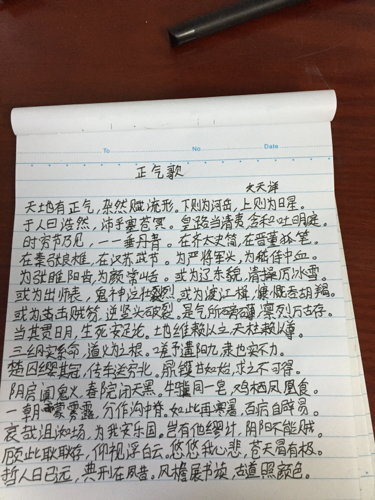 To No Date
正气歌
文天祥
天地有正气,杂然赋流形。下则为河岳,上则为日星。
于人曰浩然,沛乎塞苍冥。皇路当清夷,含和吐明庭。
时穷节乃见,一一垂丹青。在齐太史简,在晋董狐笔。
在秦张良椎,在汉苏武节。为严将军头,为嵇侍中血。
为张睢阳齿,为颜常山舌。或为辽东貌,清操厉冰雪。
或为出师表,鬼神泣壮烈。或为渡江楫,慷慨吞胡羯。
或为击贼笏,逆竖头破裂。是气所磅礴,凛烈万古存。
当其贯日月,生死安足论。地维赖以立,天柱赖以尊。
三纲实系命,道义为之根。嗟予遘阳九,隶也实不力。
楚囚缨其冠,传车送穷北。鼎镬甘如饴,求之不可得。
阴房阒鬼火,春院闭天黑。牛骥同一皂,鸡栖凤凰食。
一朝蒙雾露,分作沟中瘠。如此再寒暑,百疠自辟易。
哀哉沮洳场,为我安乐国。岂有他缪计,阴阳不能贼。
顾此耿耿存,仰视浮云白。悠悠我心悲,苍天曷有极。
哲人日已远,典刑在夙昔。风檐展书读,古道照颜色。